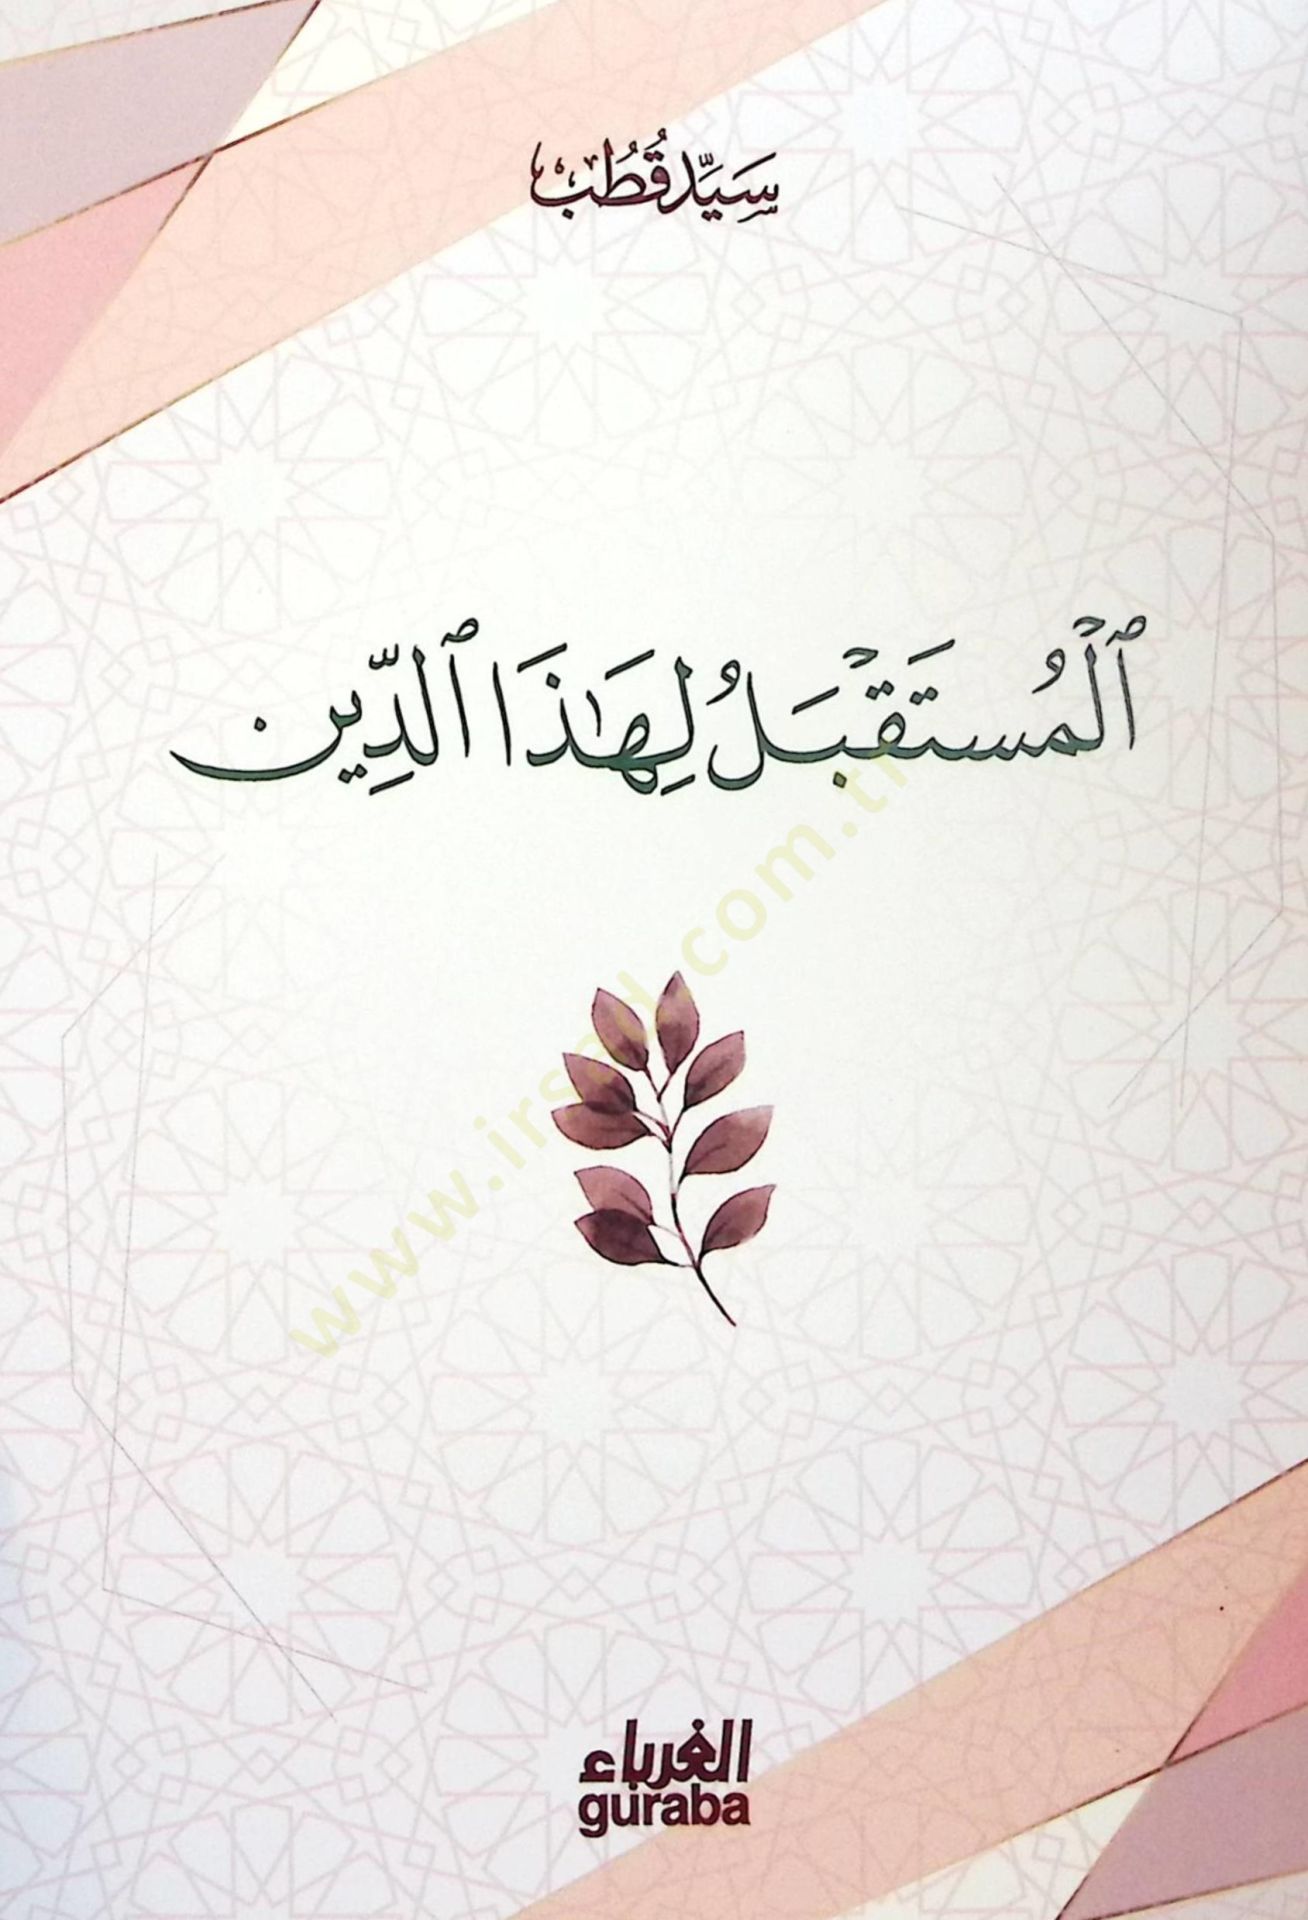 سَيِّد قُطُب
ٱلْمُسْتَقْبَلُ لِهَٰذَا ٱلدِّين
www.irsad.com.tr
الغرباء
guraba